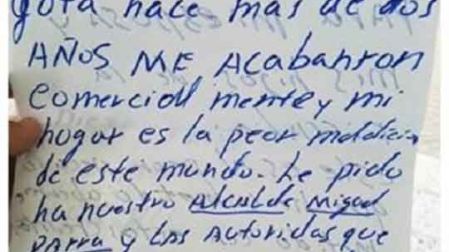 gota hace mas de dos
AÑOS ME AcabAnron
comercial mente y mi
hogar es la peor maldicion
de este mundo. Le pido
ha nuestro Alcalde Miguel
PARRA y las Autoridas que